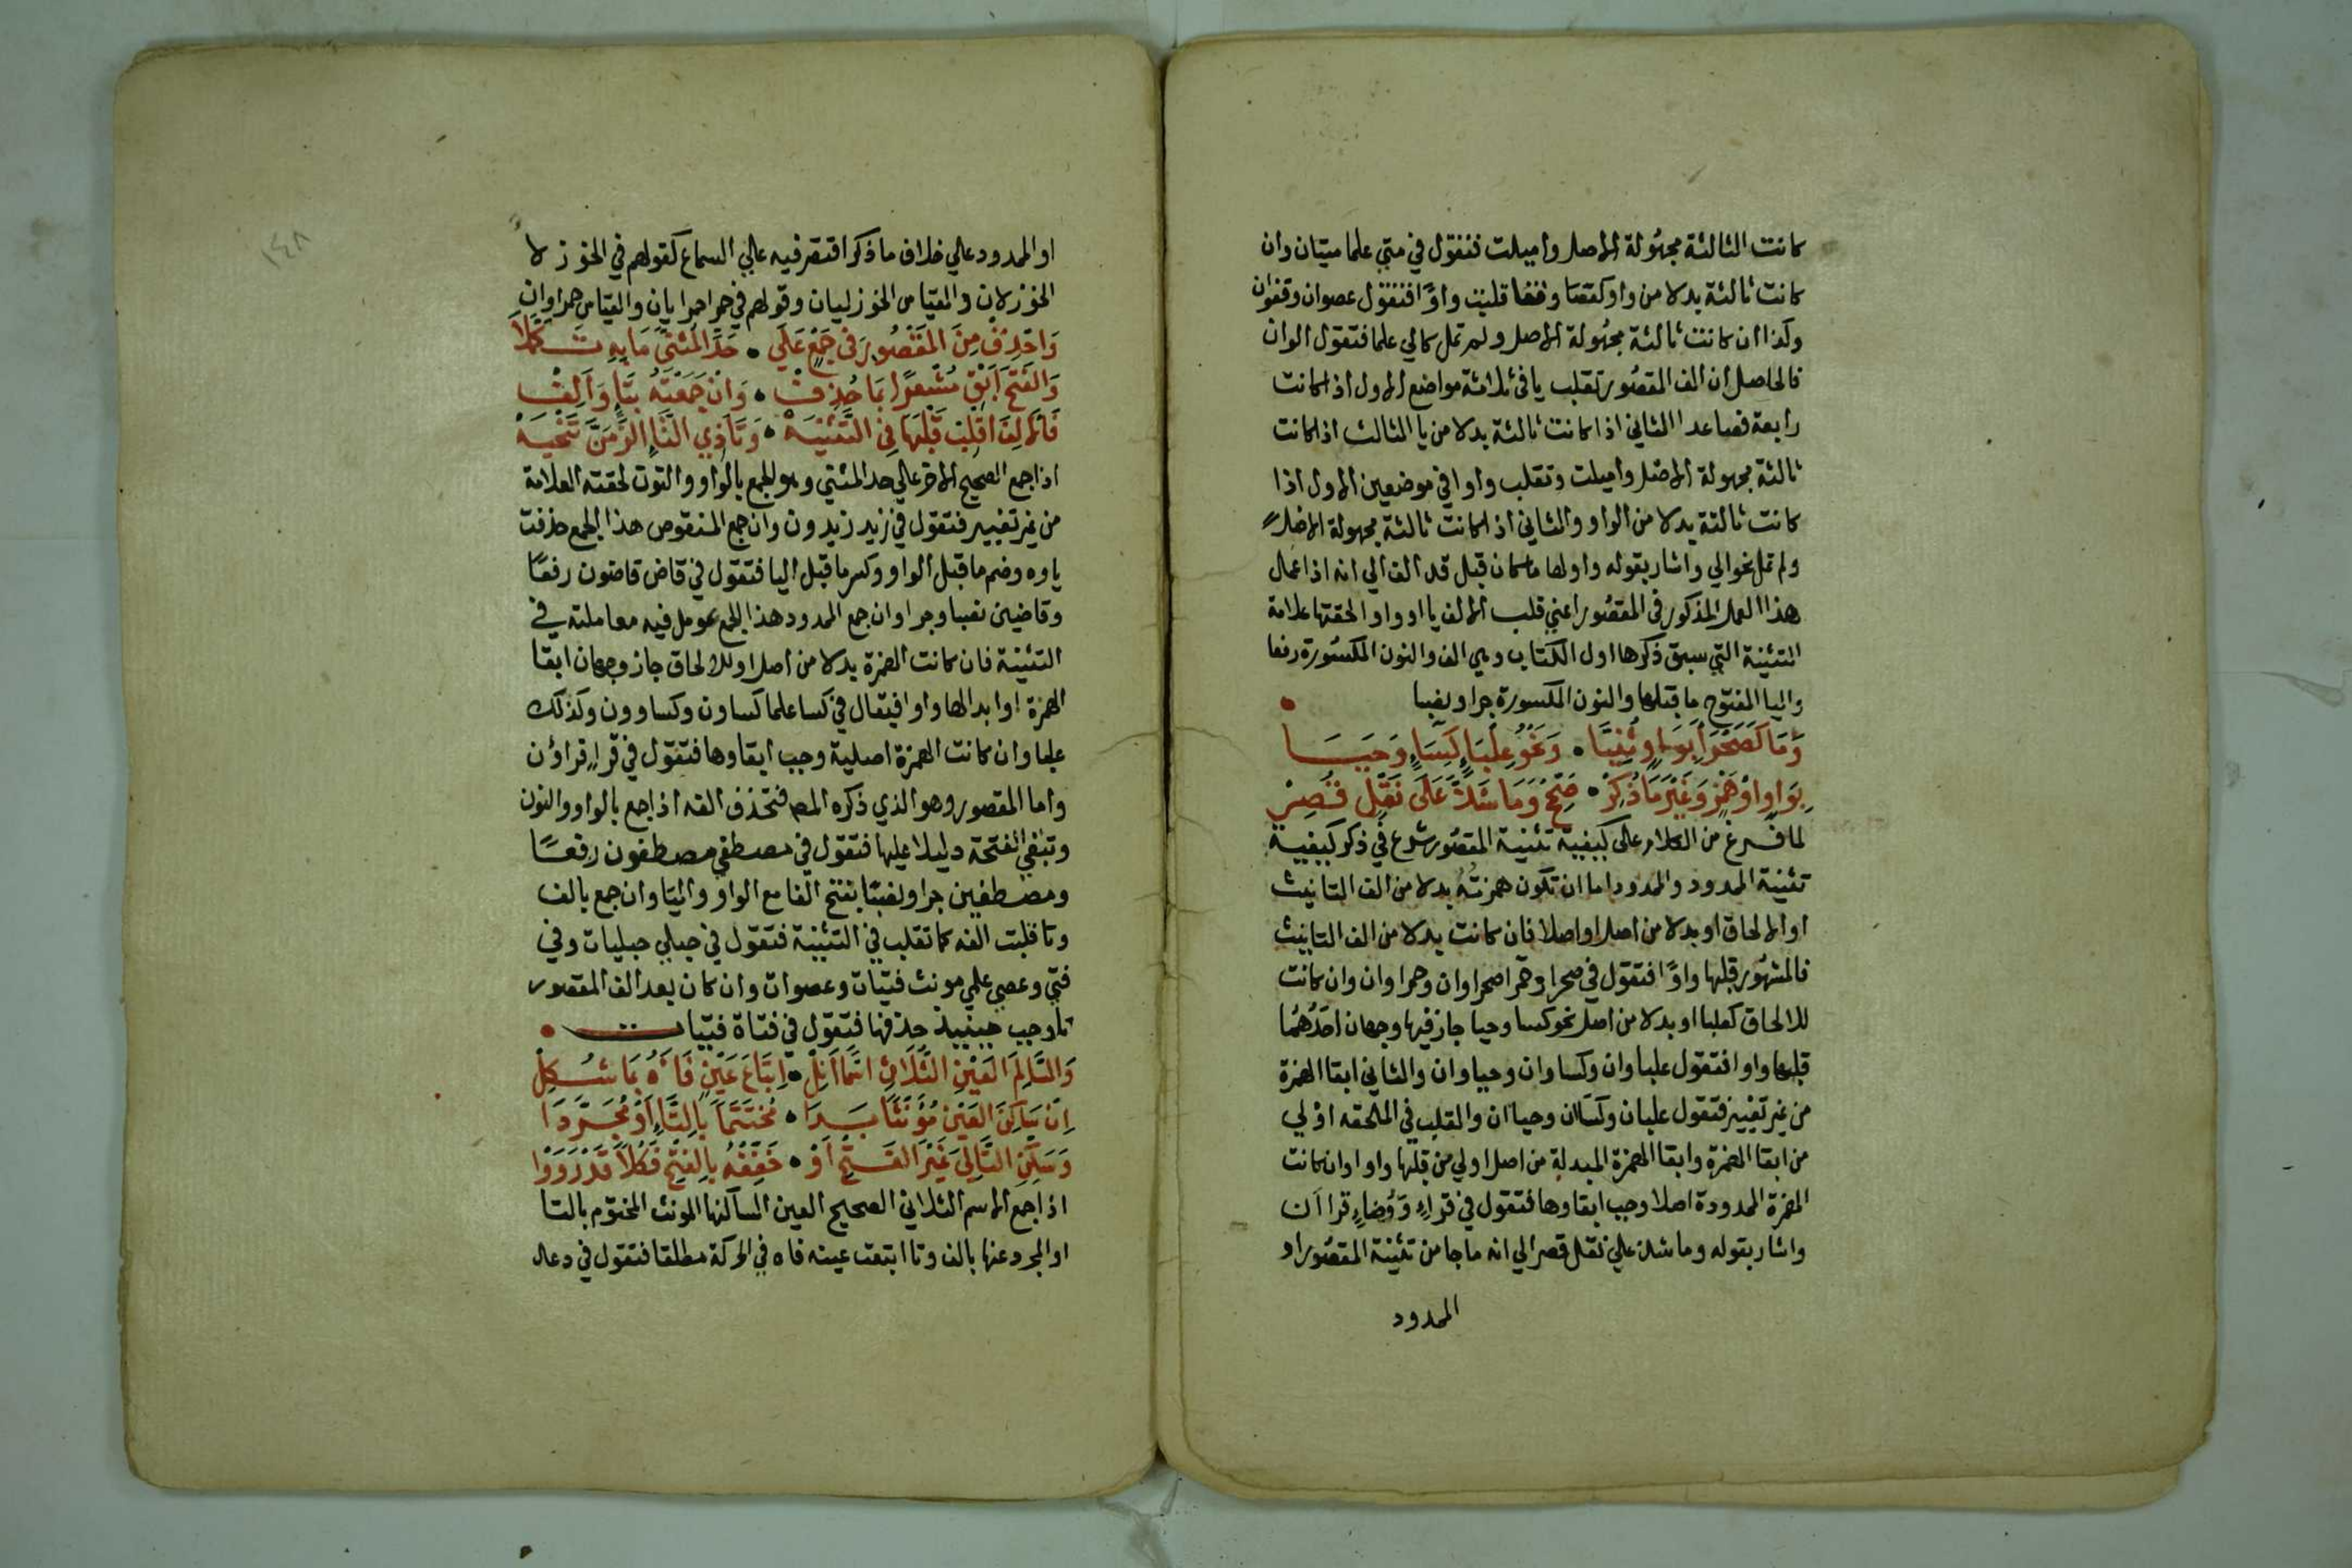 كانت الثالثة مجهولة الاصل واميلت فتقول في متي علما متيان وان
كانت ثالثة بدلا من واو كعصا وقفا قلبت واوًا فتقول عصوان وقفوان
وكذا ان كانت ثالثة مجهولة الاصل ولم تمل كالي علما فتقول الوان
فالحاصل ان الف المقصور تقلب يا في ثلاثة مواضع الاول اذا كانت
رابعة فصاعدا الثاني اذا كانت ثالثة بدلا من يا الثالث اذا كانت
ثالثة مجهولة الاصل واميلت وتقلب واوا في موضعين الاول اذا
كانت ثالثة بدلا من الواو والثاني اذا كانت ثالثة مجهولة الاصل
ولم تمل نحو الي واشار بقوله واولها ما كان قبل قد الف الي انه اذا عمل
هذا العمل المذكور في المقصور اعني قلب الالف يا او واو الحقتها علامة
التثنية التي سبق ذكرها اول الكتاب وهي الف والنون المكسورة رفعا
واليا المفتوح ما قبلها والنون المكسورة جرا ونصبا
وَمَا كَصَحْرَاءَ بِوَاوٍ ثُنِّيَا • وَنَحْوُ عِلْبَاءٍ كِسَاءٍ وَحَيَا
بِوَاوٍ اوْ هَمْزٍ وَغَيْرَ مَا ذُكِرْ • صَحِّحْ وَمَا شَذَّ عَلَى نَقْلٍ قُصِرْ
لما فرغ من الكلام على كيفية تثنية المقصور شرع في ذكر كيفية
تثنية الممدود والممدود اما ان تكون همزته بدلا من الف التانيث
او الالحاق او بدلا من اصل او اصلا فان كانت بدلا من الف التانيث
فالمشهور قلبها واوًا فتقول في صحرا وحمرا صحراوان وحمراوان وان كانت
للالحاق كعلبا او بدلا من اصل نحو كسا وحيا جاز فيها وجهان احدهما
قلبها واوا فتقول علباوان وكساوان وحياوان والثاني ابقا الهمزة
من غير تغيير فتقول علبان وكسان وحياان والقلب في الملحقه اولي
من ابقا الهمزة وابقا الهمزة المبدلة من اصل اولي من قلبها واوا وان كانت
الهمزة الممدودة اصلا وجب ابقاوها فتقول في قراءٍ ووُضاءٍ قراان
واشار بقوله وما شذ علي نقل قصر الي انه ما جا من تثنية المقصور او
الممدود
١٤٨
او الممدود علي خلاف ما ذكر اقتصر فيه علي السماع كقولهم في الخوزلا
الخوزلان والقياس الخوزليان وقولهم في حمرا حمرايان والقياس حمراوان
وَاحْذِفْ مِنَ المَقْصُورِ فى جَمْعٍ عَلَى • حَدِّ المُثَنَّى مَا بِهِ تَكَمَّلَا
وَالفَتْحَ اَبْقِ مُشْعِرًا بِمَا حُذِفْ • وَانْ جَمَعْتَهُ بِتَاءٍ وَاَلِفْ
فَالالِفَ اقْلِبْ قَلْبَهَا فِى التَّثْنِيَهْ • وَتَاءَ ذِي التَّاءِ الزِمَنَّ تَنْحِيَهْ
اذا جمع الصحيح الاخر علي حد المثني وهو الجمع بالواو والنون لحقته العلامة
من غير تغيير فتقول في زيد زيدون وان جمع المنقوص هذا الجمع حذفت
ياوه وضم ما قبل الواو وكسر ما قبل اليا فتقول في قاض قاضون رفعًا
وقاضين نصبا وجرا وان جمع الممدود هذا الجمع عومل فيه معاملته في
التثنية فان كانت الهمزة بدلا من اصل او للالحاق جاز وجهان ابقا
الهمزة او ابدالها واوا فيقال في كسا علما كساون وكساوون وكذلك
علبا وان كانت الهمزة اصلية وجب ابقاوها فتقول في قراءٍ قراؤن
واما المقصور وهو الذي ذكره المص فتحذف الفه اذا جمع بالواو والنون
وتبقي الفتحة دليلا عليها فتقول في مصطفي مصطفون رفعًا
ومصطفين جرا ونصبًا بفتح الفا مع الواو واليا وان جمع بالف
وتا قلبت الفه كما تقلب في التثنية فتقول في حبلي حبليات وفي
فتي وعصي علمي مونث فتيات وعصوات وان كان بعد الف المقصور
تا وجب حينيذ حذفها فتقول في فتاة فتيات •
وَالسَّالِمَ العَيْنِ الثُّلَاثِى اسْمًا اَنِلْ • اِتْبَاعَ عَيْنٍ فَاءَهُ بِمَا شُكِلْ
اِنْ سَاكِنَ العَيْنِ مُؤَنَّثًا بَدَا • مُخْتَتَمًا بِالتَّاءِ اَوْ مُجَرَّدَا
وَسَكِّنِ التَّالِيَ غَيْرَ الفَتْحِ اَوْ • خَفِّفْهُ بِالفَتْحِ فَكُلًّا قَدْ رَوَوْا
اذا جمع الاسم الثلاثي الصحيح العين الساكنها المونث المختوم بالتا
او المجرد عنها بالف وتا اتبعت عينه فاه في الحركة مطلقا فتقول في دعد